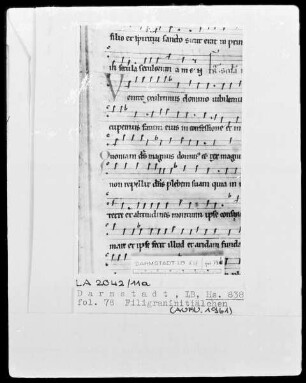 filio et spiritui sancto sicut erat in prin
in secula seculorum a m e n
Venite exultemus domino iubilemus
cupemus faciem eius in confessione et in
Quoniam ds magnus dominus et rex magnus
non repellet dns plebem suam quia in
terre et altitudines montium ipse conspi
mare et ipse fecit illud et aridam funda
LA 2042/11a
Darmstadt, LB, Hs. 838
fol. 78 Filigraninitiälchen
(AUFN. 1961)